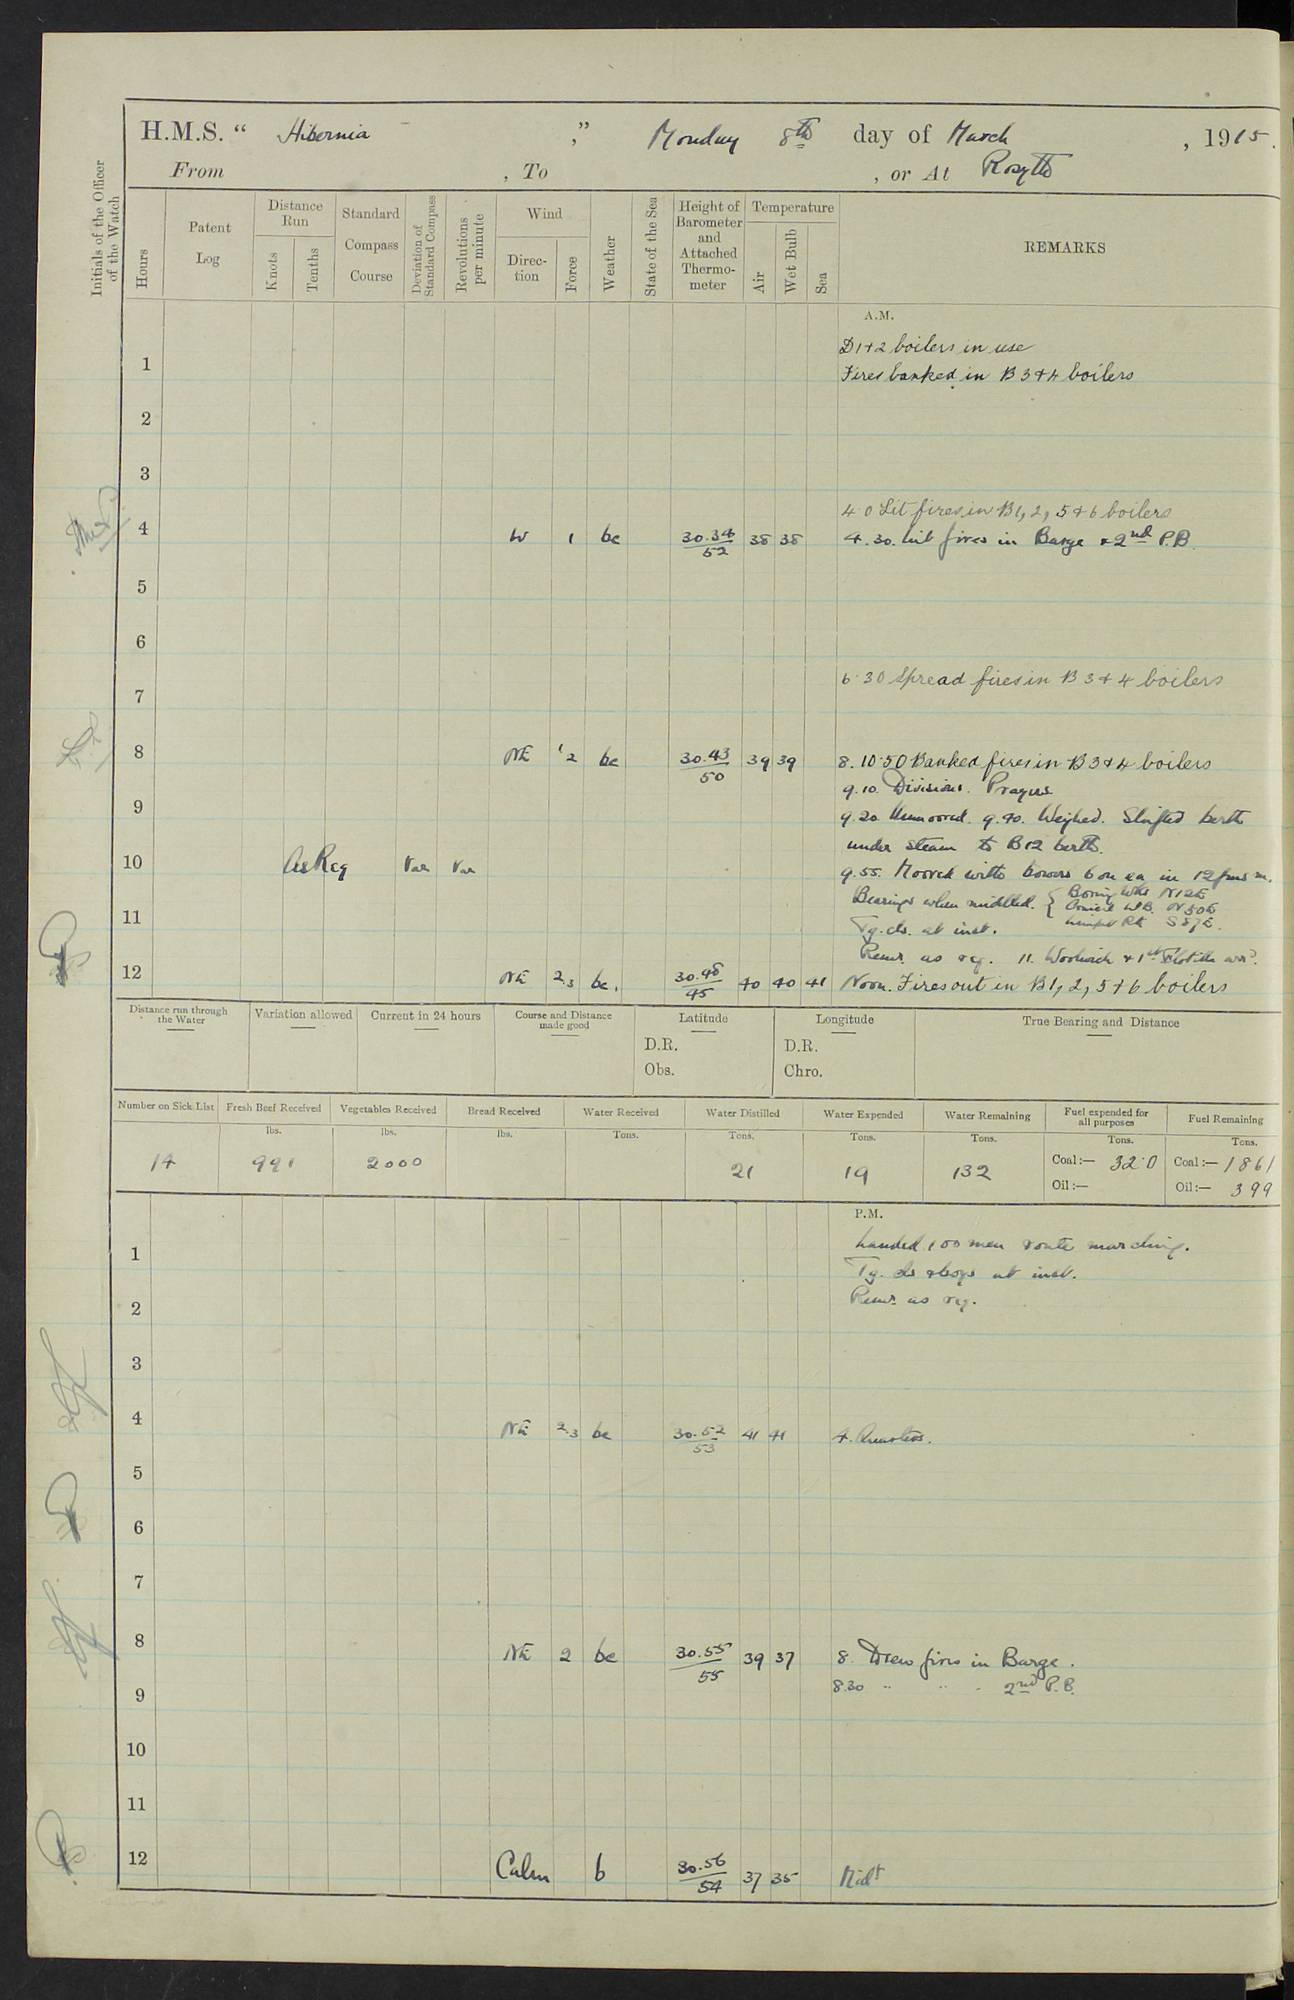 H.M.S. “ Hibernia ” Monday 8th day of March , 1915.
From , To , or At Rosyth
Initials of the Officer of the Watch
Hours
Patent Log
Distance Run
Knots
Tenths
Standard Compass Course
Deviation of Standard Compass
Revolutions per minute
Wind
Direc- tion
Force
Weather
State of the Sea
Height of Barometer and Attached Thermo- meter
Temperature
Air
Wet Bulb
Sea
REMARKS
A.M.
D1+2 boilers in use
1 Fires banked in B 3+4 boilers
2
3
4.0 Lit fires in B1, 2, 5+6 boilers
4 W 1 bc 30.34 38 38 4.30. Lit fires in Barge + 2nd P.B.
52
5
6
7 6.30 Spread fires in B 3+4 boilers
8 NE 1 2 bc 30.43 39 39 8. 10.50 Banked fires in B 3+4 boilers
50
9.10. Divisions. Prayers
9 9.20 Unmoored. 9.40. Weighed. Shifted berth
under steam to B12 berth.
10 As Req Var Var 9.55. Moored with bowers 6 on ea in 12 fms m.
Bearings when middled. { N12E
N50E
11 Tg. cls. at inst. S87E.
Remr. as req. 11. Woolwich + 1st Flotilla arrd.
12 NE 2.3 bc. 30.48 40 40 41 Noon. Fires out in B1, 2, 5+6 boilers
45
Distance run through the Water
Variation allowed
Current in 24 hours
Course and Distance made good
Latitude
D.R.
Obs.
Longitude
D.R.
Chro.
True Bearing and Distance
Number on Sick List Fresh Beef Received Vegetables Received Bread Received Water Received Water Distilled Water Expended Water Remaining Fuel expended for all purposes Fuel Remaining
lbs. lbs. lbs. Tons. Tons. Tons. Tons. Tons. Tons.
14 991 2000 21 19 132 Coal:— 32.0 Coal:— 1861
Oil:— Oil:— 399
P.M.
1 Landed 100 men route marching.
Tg. cls + boys at inst.
2 Remr. as req.
3
4 NE 2.3 bc 30.52 41 41 4. Quarters.
53
5
6
7
8 NE 2 bc 30.55 39 37 8. Drew fires in Barge.
55
9 8.30 " " " 2nd P.B.
10
11
12 Calm b 30.56 37 35 Midt
54